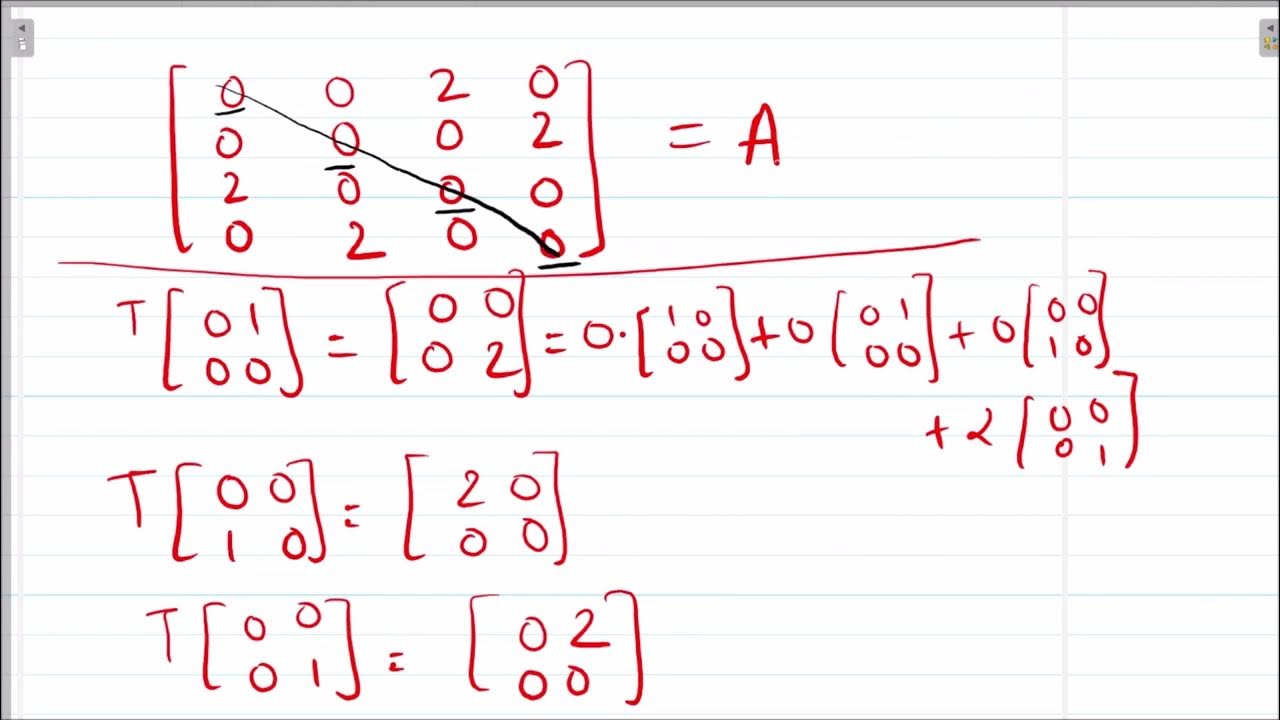 [ 0 0 2 0
0 0 0 2 = A
2 0 0 0
0 2 0 0 ]
T [ 0 1 ; 0 0 ] = [ 0 0 ; 0 2 ] = 0 · [ 1 0 ; 0 0 ] + 0 [ 0 1 ; 0 0 ] + 0 [ 0 0 ; 1 0 ]
+ 2 [ 0 0 ; 0 1 ]
T [ 0 0 ; 1 0 ] = [ 2 0 ; 0 0 ]
T [ 0 0 ; 0 1 ] = [ 0 2 ; 0 0 ]